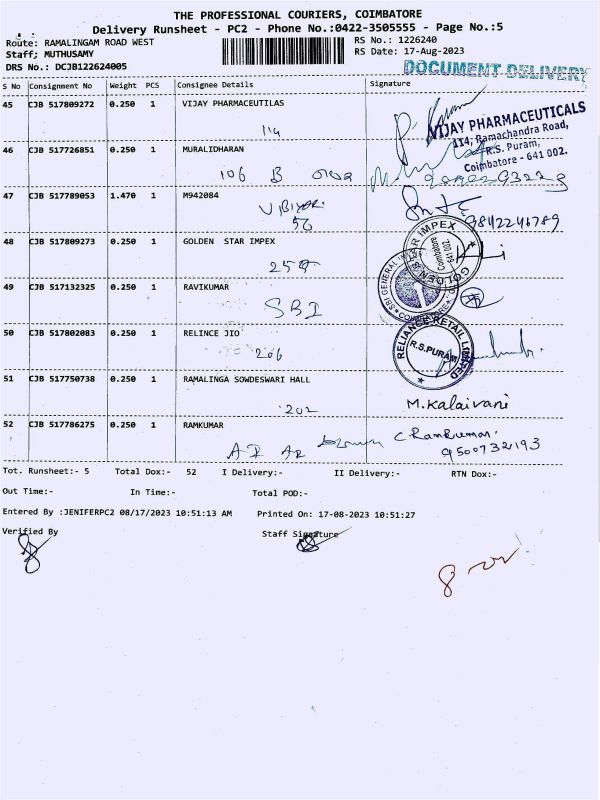 THE PROFESSIONAL COURIERS, COIMBATORE
Delivery Runsheet - PC2 - Phone No.:0422-3505555 - Page No.:5
Route: RAMALINGAM ROAD WEST
RS No.: 1226240
Staff; MUTHUSAMY
RS Date: 17-Aug-2023
DRS No.: DCJB122624005
DOCUMENT DELIVERY
S No Consignment No Weight PCS Consignee Details Signature
45 CJB 517809272 0.250 1 VIJAY PHARMACEUTILAS
114
VIJAY PHARMACEUTICALS
114, Ramachandra Road,
R.S. Puram,
Coimbatore - 641 002.
46 CJB 517726851 0.250 1 MURALIDHARAN
106 B
47 CJB 517789053 1.470 1 M942084
56
9842246789
48 CJB 517809273 0.250 1 GOLDEN STAR IMPEX
GOLDEN STAR IMPEX
Coimbatore
641 002.
49 CJB 517132325 0.250 1 RAVIKUMAR
SBI
50 CJB 517802083 0.250 1 RELINCE JIO
206
RELIANCE RETAIL LIMITED
R.S.PURAM
51 CJB 517750738 0.250 1 RAMALINGA SOWDESWARI HALL
202
M.Kalaivani
52 CJB 517786275 0.250 1 RAMKUMAR
C Ramkumar.
9500732193
Tot. Runsheet:- 5 Total Dox:- 52 I Delivery:- II Delivery:- RTN Dox:-
Out Time:- In Time:- Total POD:-
Entered By :JENIFERPC2 08/17/2023 10:51:13 AM Printed On: 17-08-2023 10:51:27
Verified By
Staff Signature